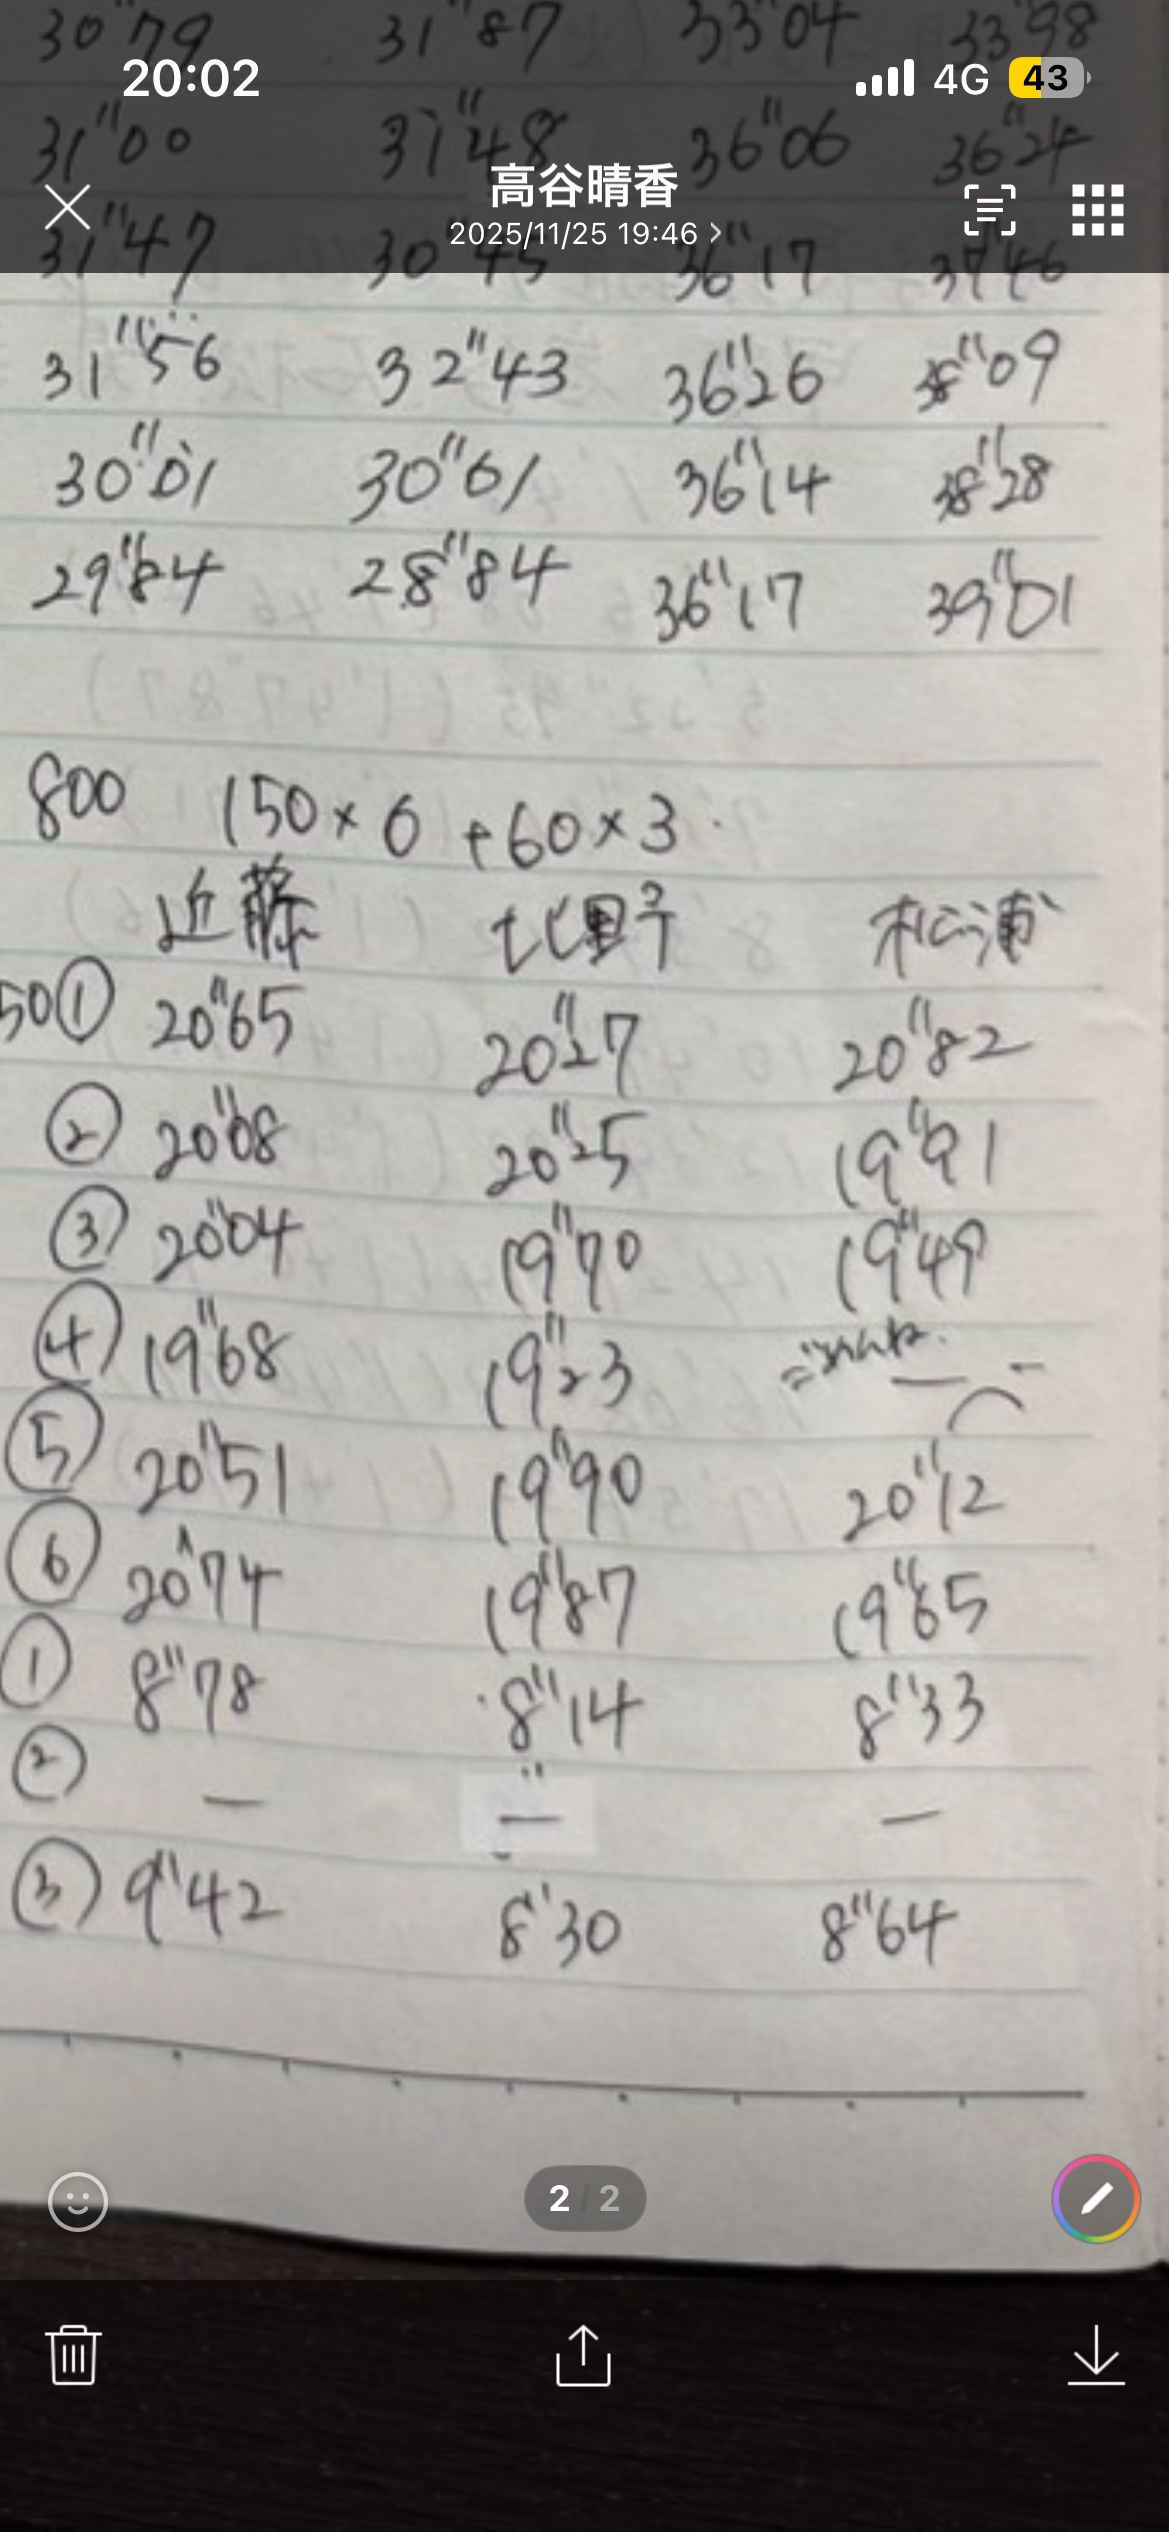 30"79 31"87 33"04 33"98
20:02 4G 43
31"00 31"48 36"06 36"24
高谷晴香
2025/11/25 19:46
31"47 30"45 36"17 37"46
31"56 32"43 36"26 38"09
30"01 30"61 36"14 38"28
29"84 28"84 36"17 39"01
800 150×6 +60×3
近藤 北野 松浦
50① 20"65 20"27 20"82
② 20"08 20"25 19"91
③ 20"04 19"70 19"49
④ 19"68 19"23 ごめんね
⑤ 20"51 19"90 20"12
⑥ 20"74 19"87 19"65
① 8"78 8"14 8"33
② — — —
③ 9"42 8"30 8"64
2 / 2